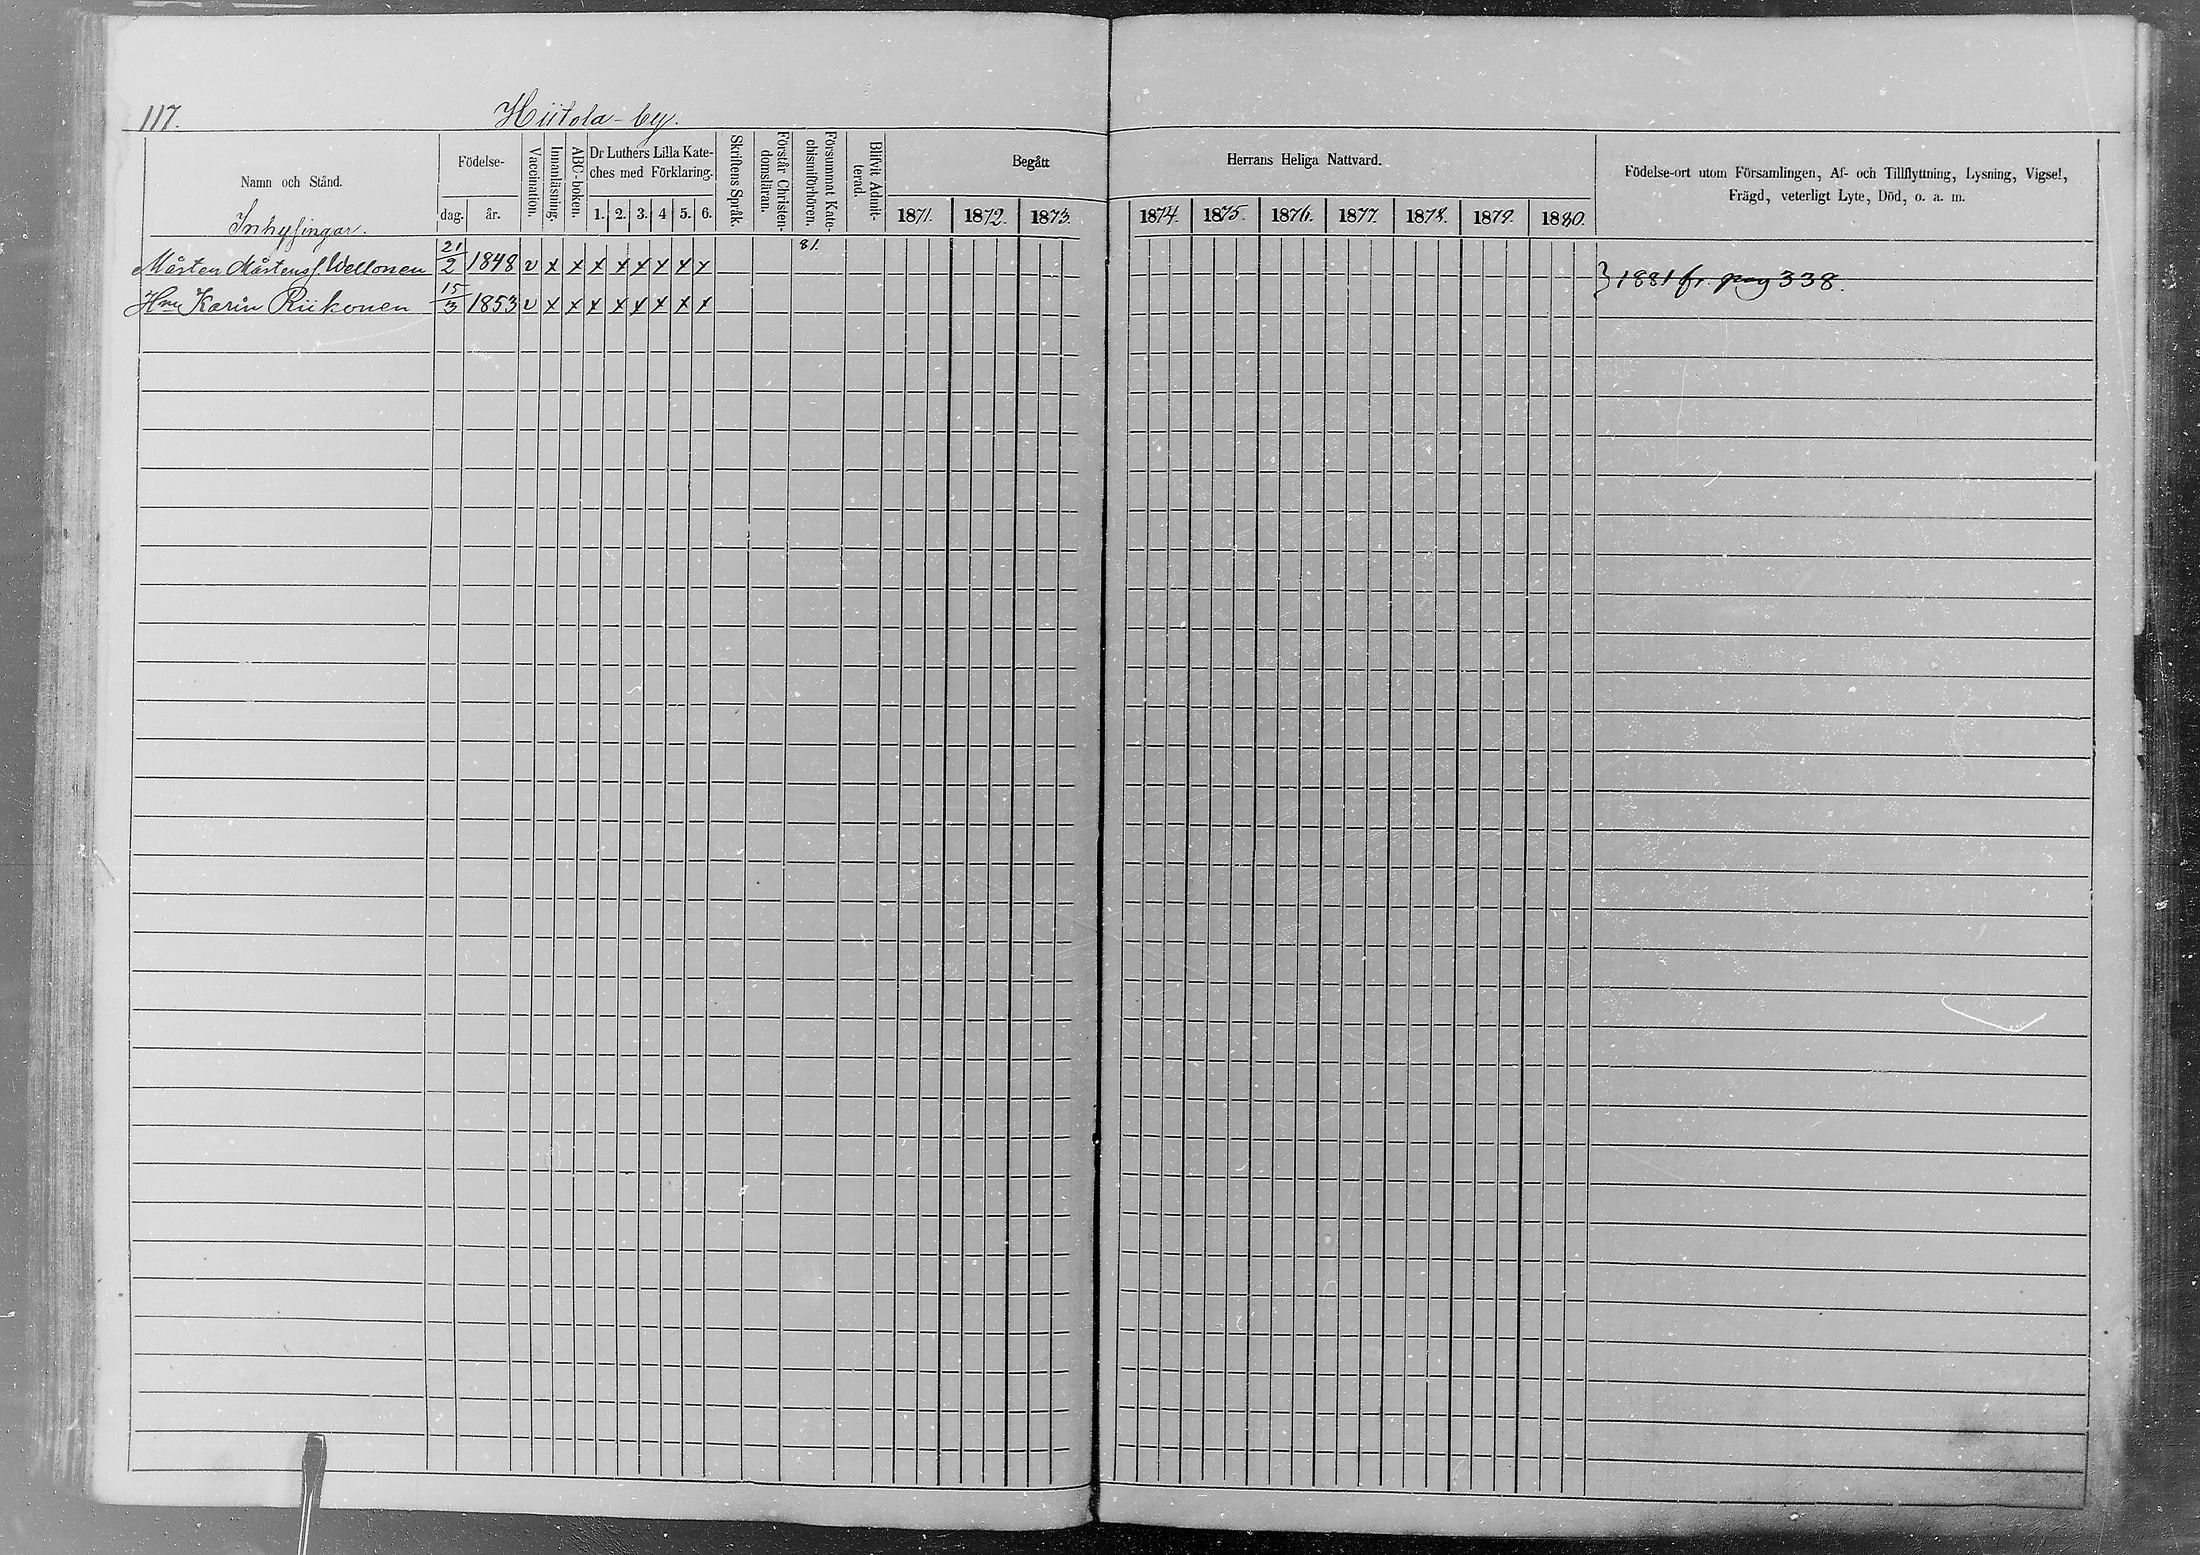 117. Hiitola-by.
Namn och Stånd.
Födelse-
dag. år.
Vaccination.
Innanläsning.
ABC-boken.
Dr Luthers Lilla Kate-
ches med Förklaring.
1. 2. 3. 4 5. 6.
Skriftens Språk.
Förstår Christen-
domsläran.
Försummat Kate-
chismiförhören.
Blifvit Admit-
terad.
Begått Herrans Heliga Nattvard.
1871. 1872. 1873. 1874. 1875. 1876. 1877. 1878. 1879. 1880.
Födelse-ort utom Församlingen, Af- och Tillflyttning, Lysning, Vigsel,
Frägd, veterligt Lyte, Död, o. a. m.
Inhysingar.
Mårten Mårtens Wellonen 21/2 1848 v x x x x x x x x 81.
Hru Karin Riikonen 15/3 1853 v x x x x x x x x
} 1881 fr. pag 338.